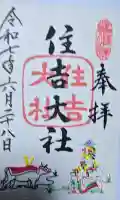 奉拝
住吉大社
住吉大社
令和七年六月二十八日